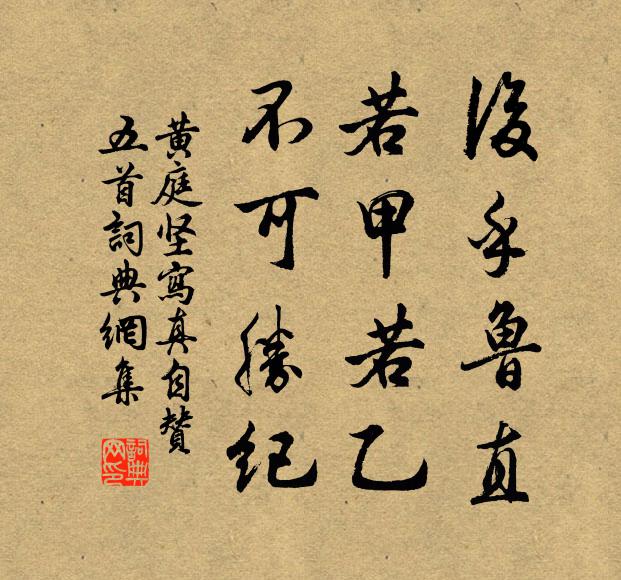 後乎魯直
若甲若乙
不可勝紀
黄庭坚寫真自賛
五首詞典網集
詞典
网印